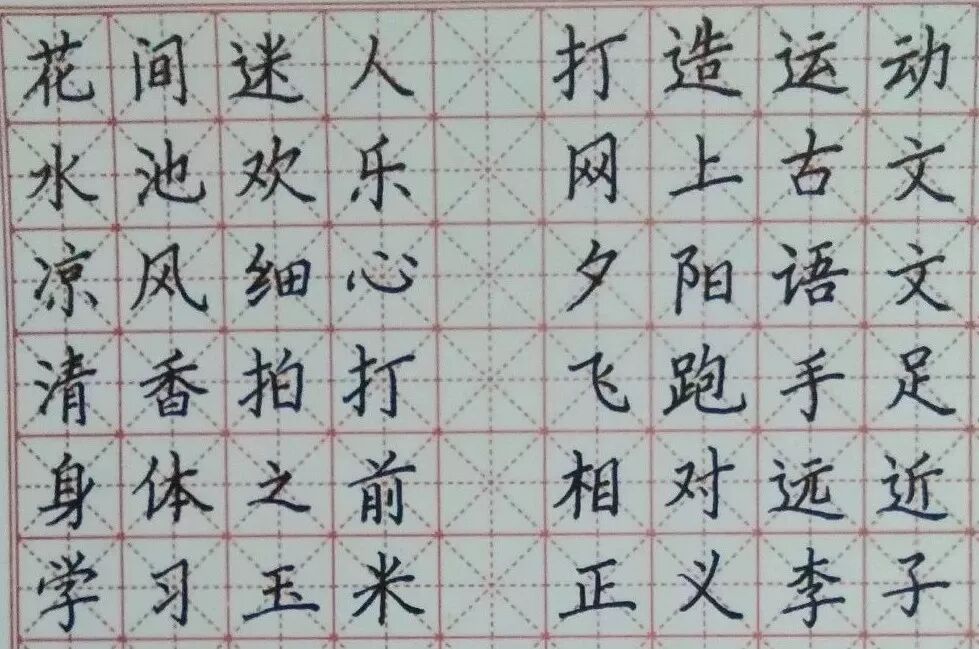 花间迷人 打造运动
水池欢乐 网上古文
凉风细心 夕阳语文
清香拍打 飞跑手足
身体之前 相对远近
学习玉米 正义李子